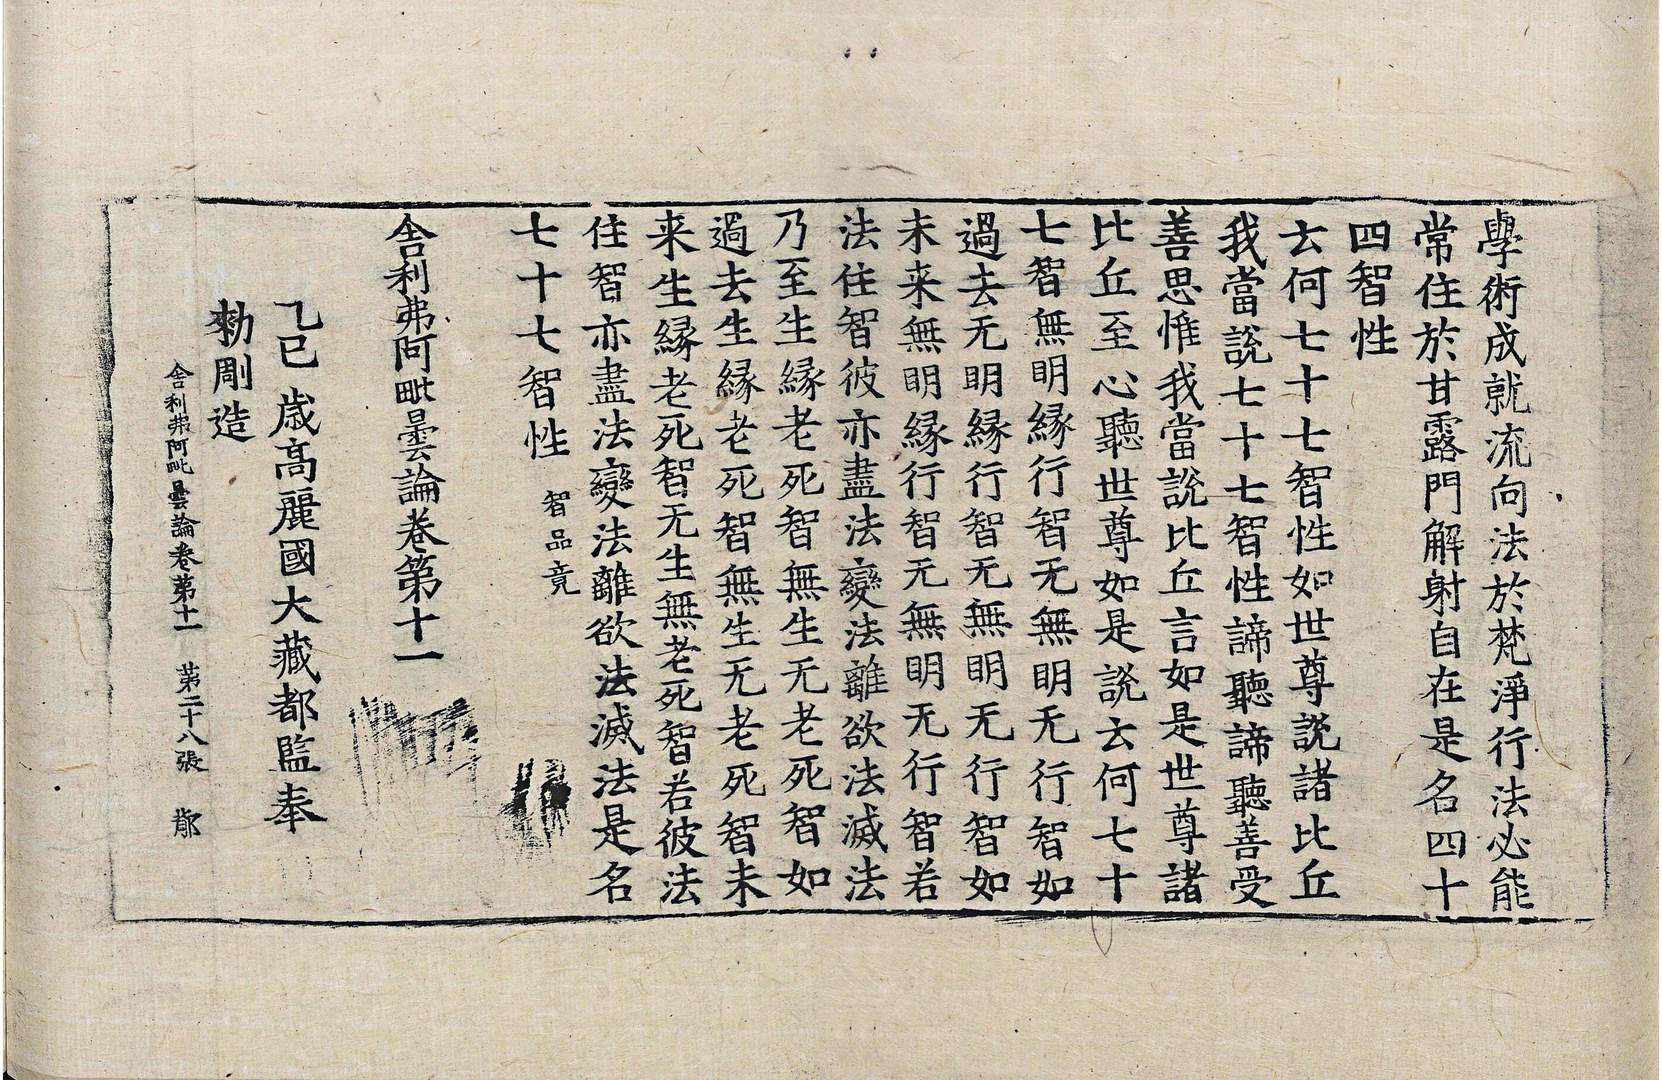 學術成就流向法於梵淨行法必能
常住於甘露門解射自在是名四十
四智性
云何七十七智性如世尊說諸比丘
我當說七十七智性諦聽諦聽善受
善思惟我當說比丘言如是世尊諸
比丘至心聽世尊如是說云何七十
七智無明緣行智无無明无行智如
過去无明緣行智无無明无行智如
未来無明緣行智无無明无行智若
法住智彼亦盡法變法離欲法滅法
乃至生緣老死智無生无老死智如
過去生緣老死智無生无老死智未
来生緣老死智无生無老死智若彼法
住智亦盡法變法離欲法滅法是名
七十七智性 智品竟
舍利弗阿毗曇論卷第十一
乙巳歳高麗國大藏都監奉
勑彫造
舍利弗阿毗曇論卷第十一 第二十八張